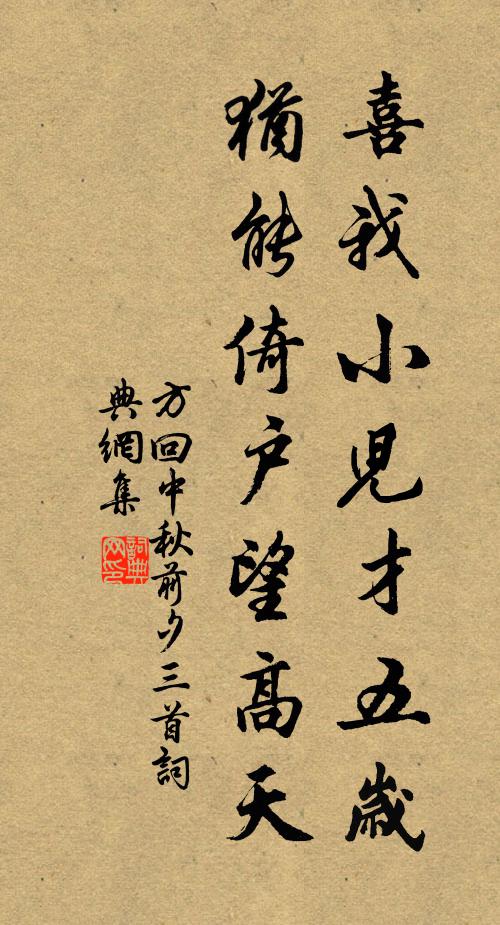 喜我小兒才五歲
猶能倚戶望高天
方回中秋前夕三首詞
典網集
詞典
网印